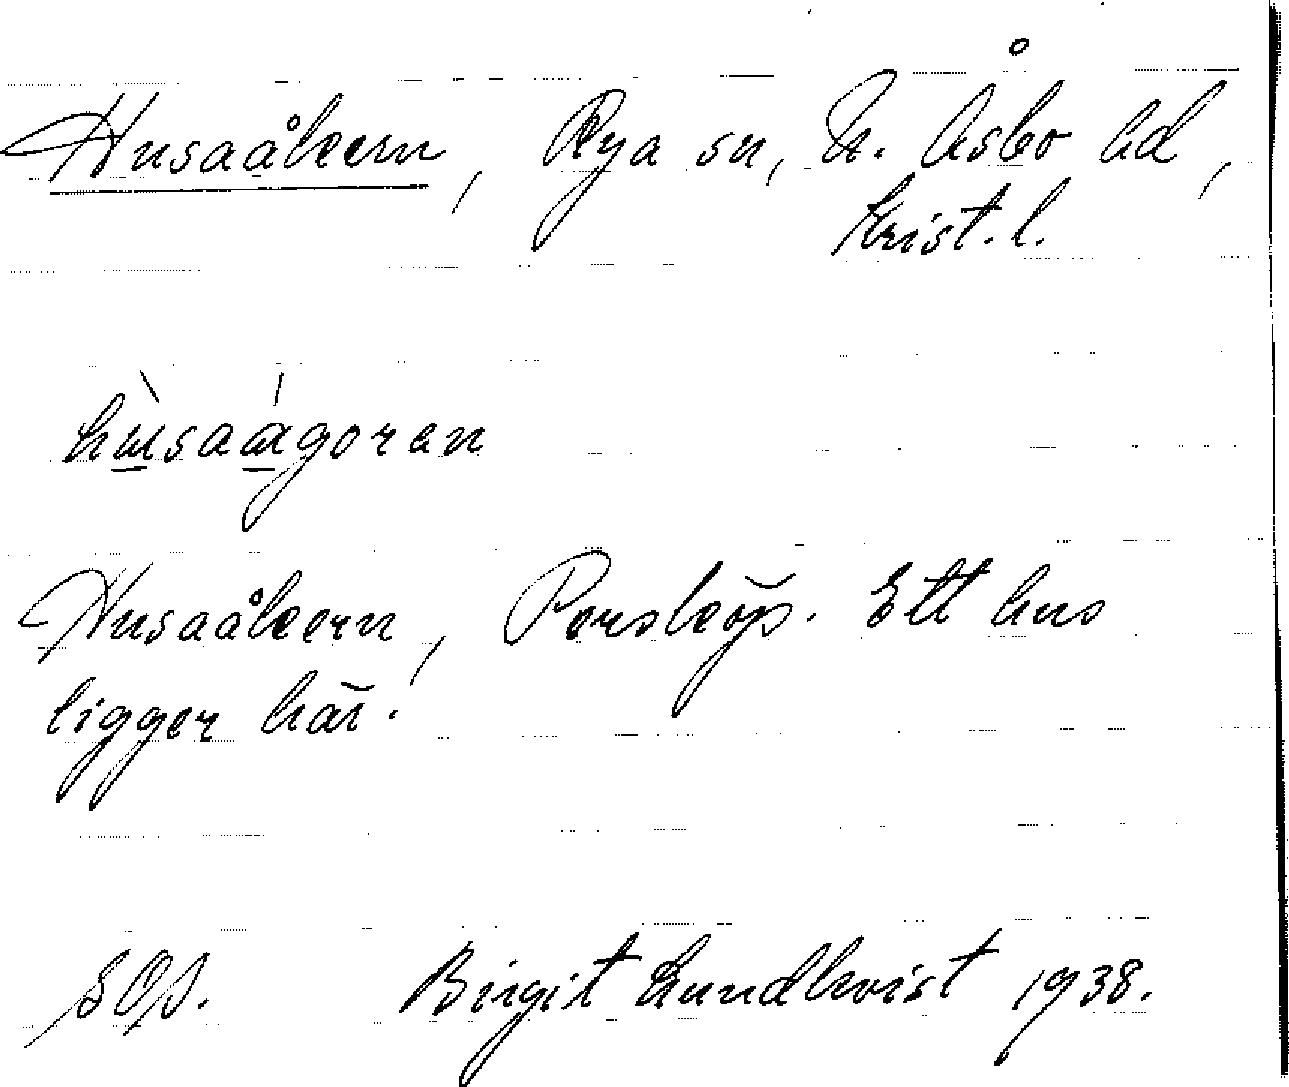 Husaåkern, Rya sn, N. Åsbo hd,
Krist. l.
hùsaágoren
Husaåkern, Porsköp. Ett hus
ligger här.
SOS. Birgit Lundkvist 1938.